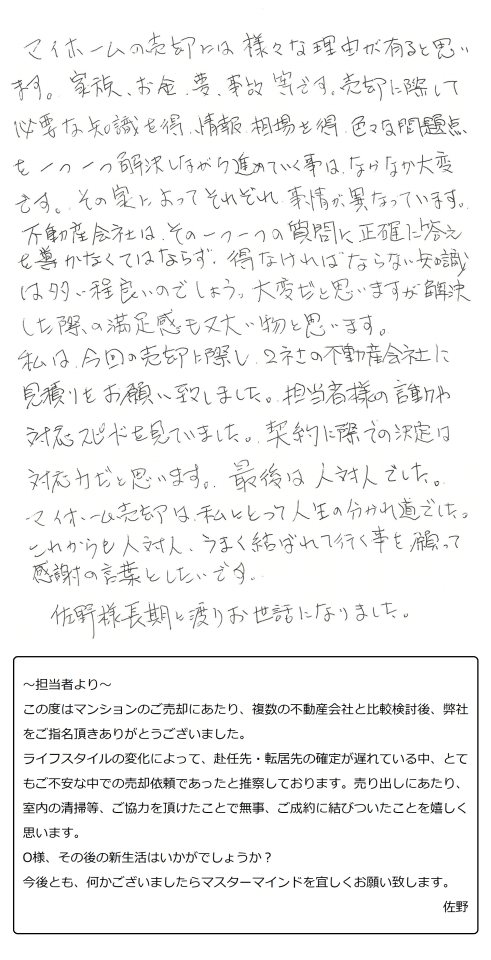 マイホームの売却には様々な理由が有ると思い
ます。家族、お金、夢、事故等です。売却に際して
必要な知識を得、情報、相場を得、色々な問題点
を一つ一つ解決しながら進めていく事は、なかなか大変
です。その家によってそれぞれ、事情が異なっています。
不動産会社は、その一つ一つの質問に正確に答え
を導かなくてはならず、得なければならない知識
は多い程良いのでしょう。大変だと思いますが解決
した際、の満足感も又大い物と思います。
私は、今回の売却に際し、2ネさの不動産会社に
見積りをお願い致しました。担当者様の言動や
対応スピードを見ていました。契約に際での決定は
対応力だと思います。最後は人対人でした。
マイホーム売却は、私にとって人生の分かれ道でした。
これからも人対人、うまく結ばれて行く事を願って
感謝の言葉としたいです。
佐野様長期と渡りお世話になりました。
～担当者より～
この度はマンションのご売却にあたり、複数の不動産会社と比較検討後、弊社
をご指名頂きありがとうございました。
ライフスタイルの変化によって、赴任先・転居先の確定が遅れている中、とて
もご不安な中での売却依頼であったと推察しております。売り出しにあたり、
室内の清掃等、ご協力を頂けたことで無事、ご成約に結びついたことを嬉しく
思います。
O様、その後の新生活はいかがでしょうか？
今後とも、何かございましたらマスターマインドを宜しくお願い致します。
佐野